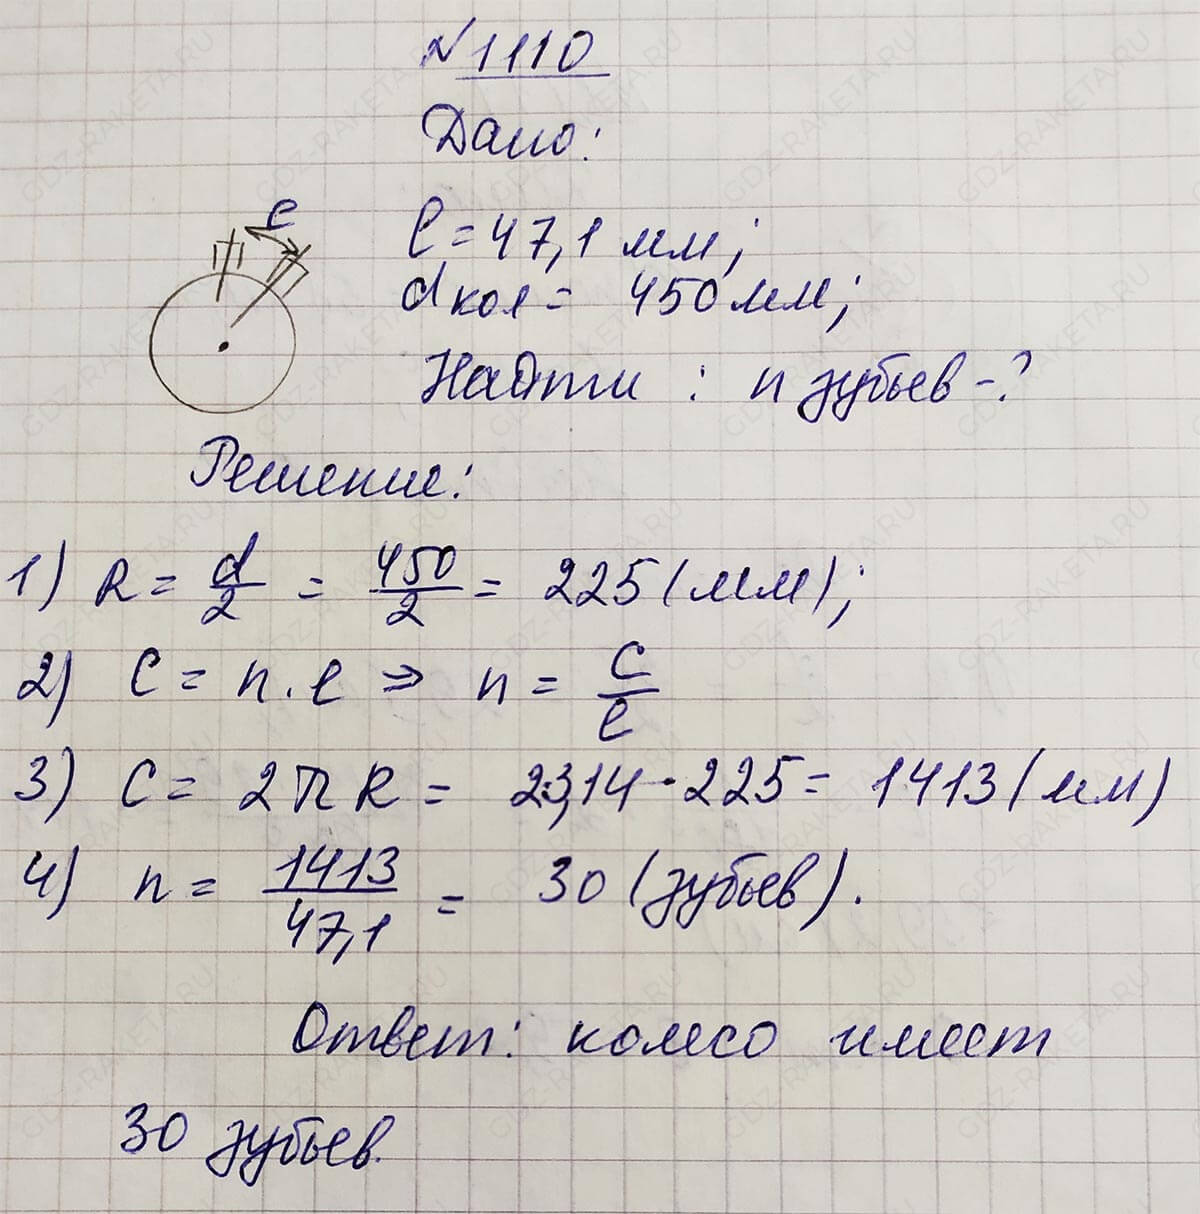 №1110
Дано:
l
l = 47,1 мм;
dкол = 450 мм;
Найти : n зубьев -?
Решение:
1) R = d/2 = 450/2 = 225 (мм);
2) C = n · l ⇒ n = C/l
3) C = 2πR = 2·3,14 · 225 = 1413 (мм)
4) n = 1413/47,1 = 30 (зубьев).
Ответ: колесо имеет
30 зубьев.
GDZ-RAKETA.RU